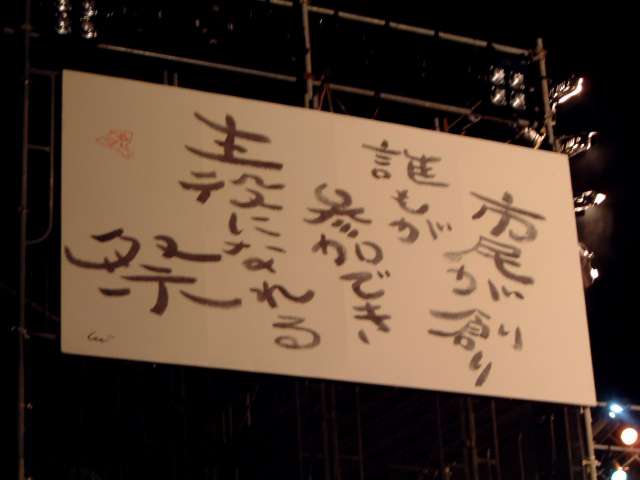 市民が創り
誰もが
参加でき
主役になれる
祭